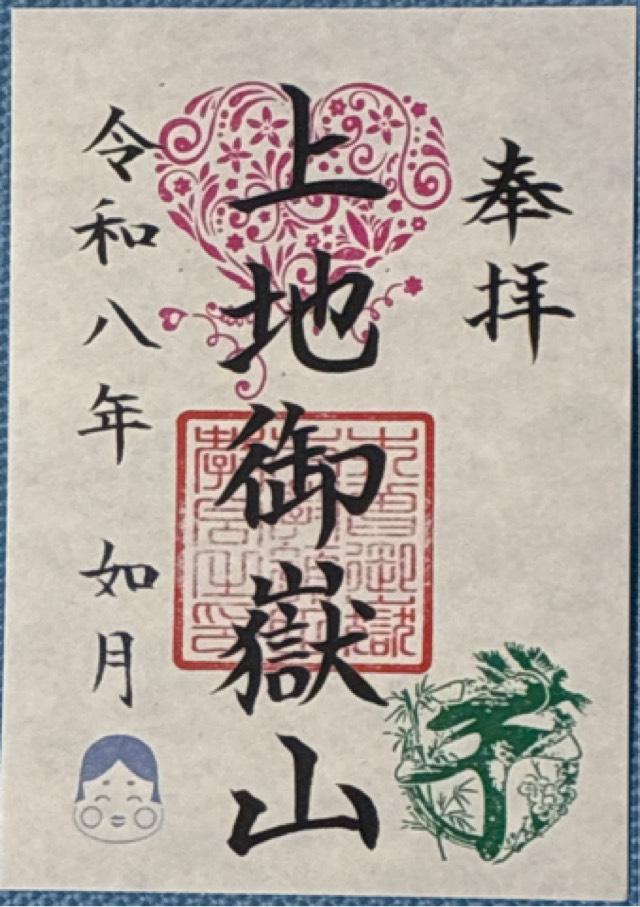 奉拝
上地御嶽山
令和八年 如月